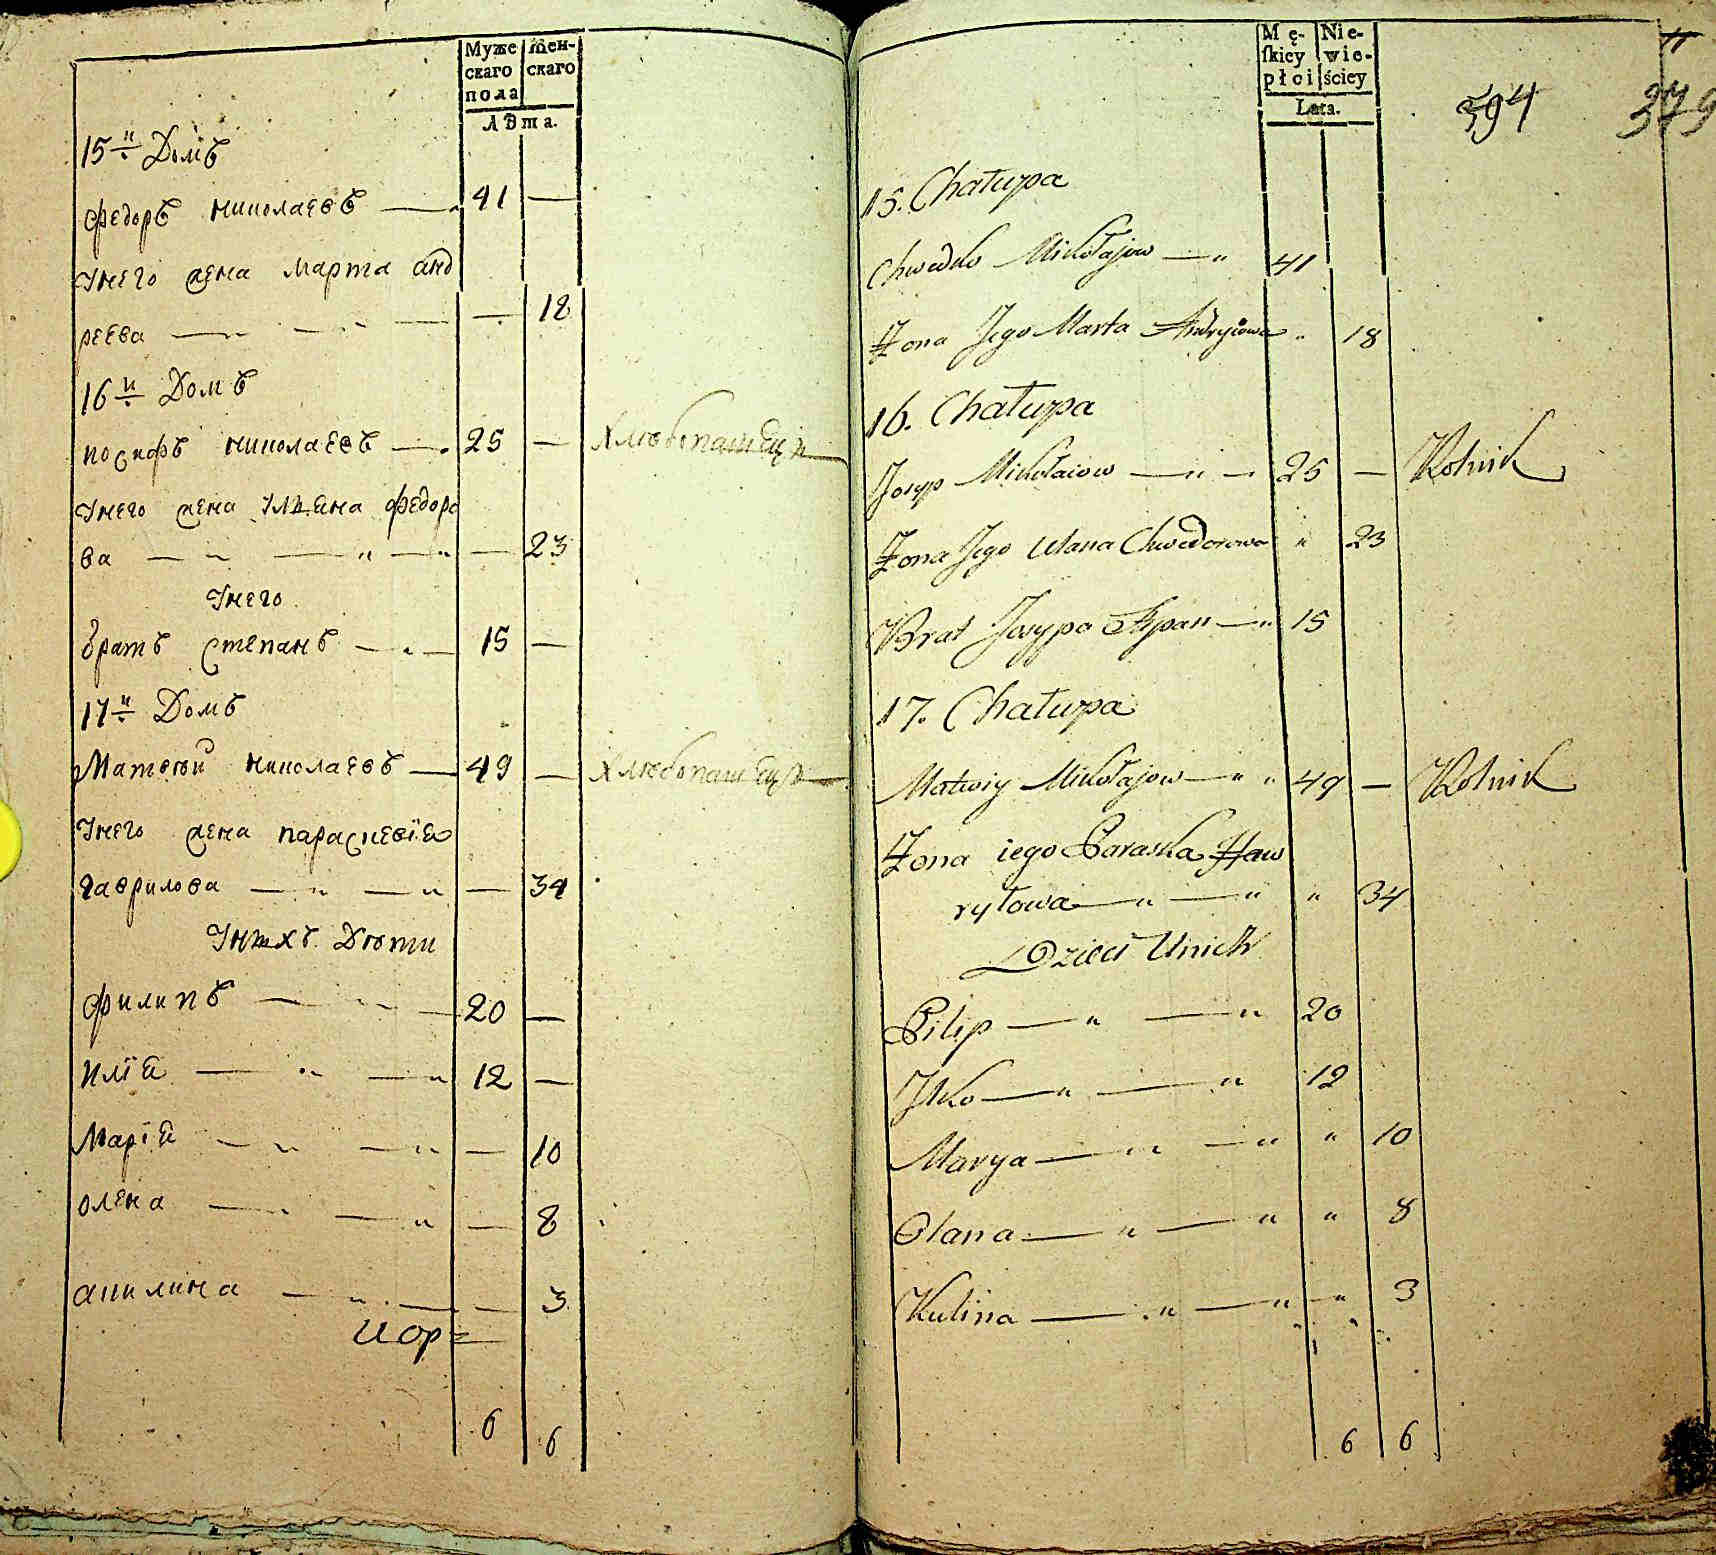 Муже скаго пола
Женскаго
Лѣта.
15й Домъ
Федоръ николаевъ — 41 —
Унего жена марта анд
реева — — 18
16й Домъ
иосифъ николаевъ — 25 — Хлѣбопашецъ
Унего жена Ульяна федоро
ва — — 23
Унего
братъ степанъ — 15 —
17й Домъ
Матвѣй николаевъ — 49 — Хлѣбопашецъ
Унего жена параскевія
гаврилова — — 34
Унихъ Дѣти
филипъ — 20 —
илія — 12 —
Марія — — 10
олена — — 8
акилина — — 3
6 6
Męſkiey płci
Niewieściey
Lata.
394
379
15. Chałupa
Chwedko Mikołajow — 41
Zona Jego Marta Andryiowa " 18
16. Chałupa
Josyp Mikołaiow — 25 — Rolnik
Zona Jego Ulana Chwedorowa " 23
Brat Josypa Stepan — 15
17. Chałupa
Matwiy Mikołajow — 49 — Rolnik
Zona iego Paraska Haw
ryłowa — " 34
Dzieci Unich
Pilip — 20
Jlko — 12
Marya — " 10
Olana — " 8
Kulina — " 3
6 6